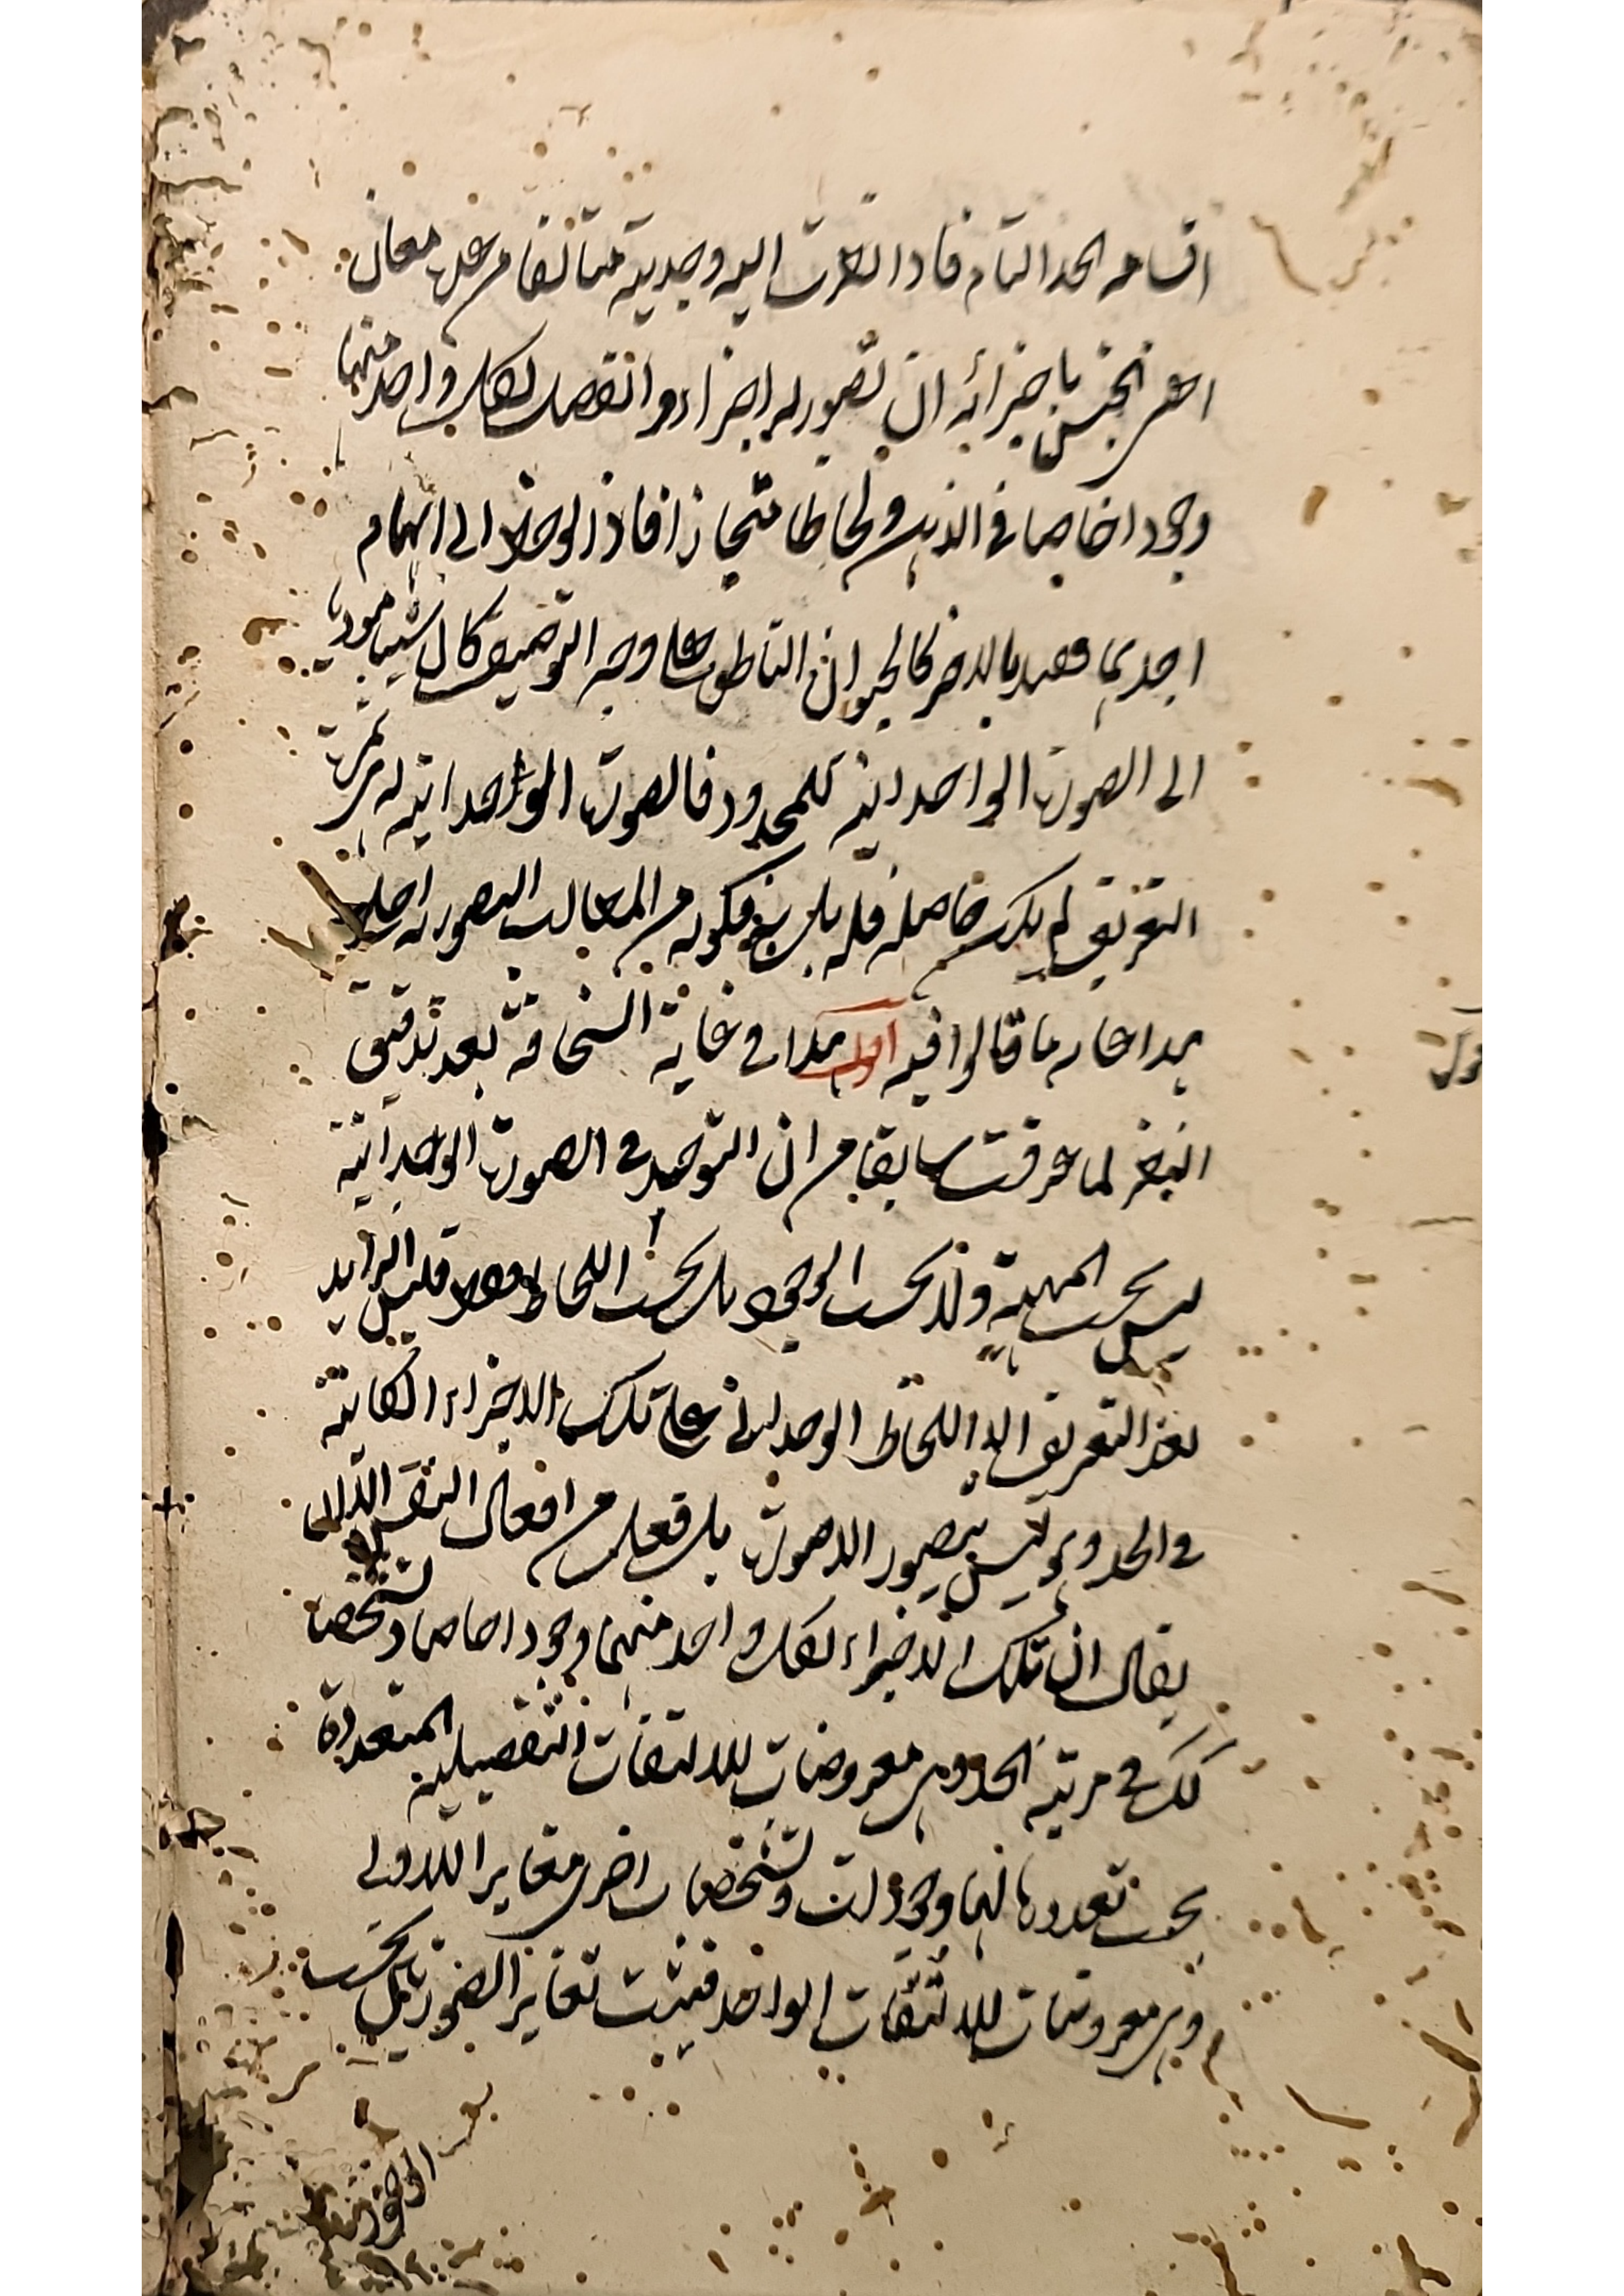 اقسامه الحد التام فاذا نظرت اليه وجديته متالفا من عدة معان
اعنى الجنس باجزائه التى تصور لها اجزاء وانفصل لكل واحد منهما
وجودا خاصا فى الذهن ولحاظا منحازا فاذا لوحظ الى ابهام
احديهما وقيد بالاخر كالحيوان الناطق على وجه التوصيف كان شيئا موديا
الى الصورة الواحدانية للمحدود فالصورة الواحدانية له ثمرة
التعريف لم يكن حاصلة قبله بل به فيكون من المطالب التصورية احد
هذا غاية ما قالوا فيه اقول هذا فى غاية السخافة بعد تدقيق
النظر لما عرفت سابقا من ان التوحد فى الصورة الواحدانية
ليس بحسب المهية ولا بحسب الوجود بل بحسب اللحاظ فقط فليس الزايد
بعد التعريف الا اللحاظ الوحدانى على تلك الاجزاء الكائنة
فى الحد وهو ليس بتصور الا صورة بل فعل من افعال النفس اللهم الا
يقال ان تلك الاجزاء لكل واحد منهما وجودا خاصا وتشخصا
كك فى مرتبة الحد وهى معروضات للالتفات التفصيلية المتعددة
بحسب تعددها لهما وجودات وتشخصات اخرى مغايرا للاولى
وهى معروضات للالتفات الواحد فيثبت تغاير الصورة بل بحسب
بعد
اقول